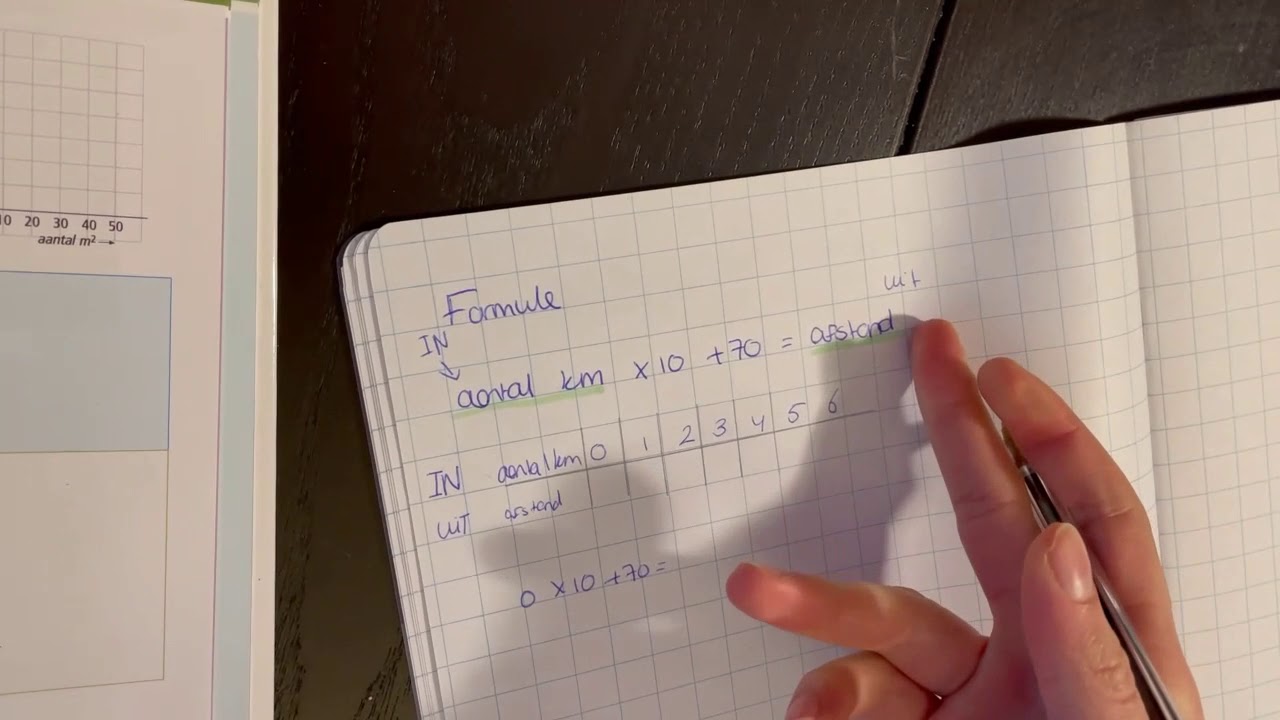 10 20 30 40 50
aantal m² →
Formule
IN
uit
aantal km x 10 + 70 = afstand
IN aantal km 0 1 2 3 4 5 6
UIT afstand
0 x 10 + 70 =